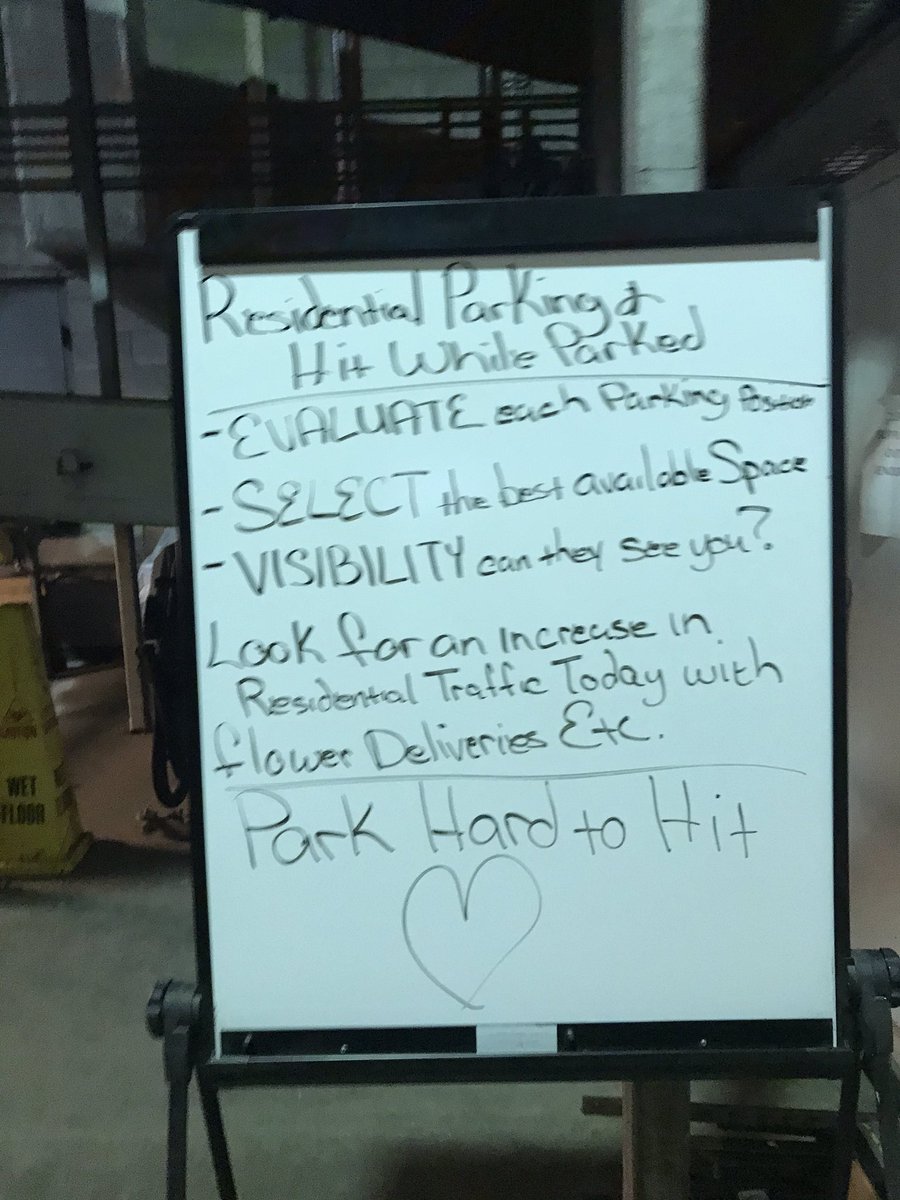 Residential Parking &
Hit While Parked
- EVALUATE each Parking Position
- SELECT the best available Space
- VISIBILITY can they see you?
Look for an increase in
Residential Traffic Today with
flower Deliveries Etc.
Park Hard to Hit
WET
FLOOR